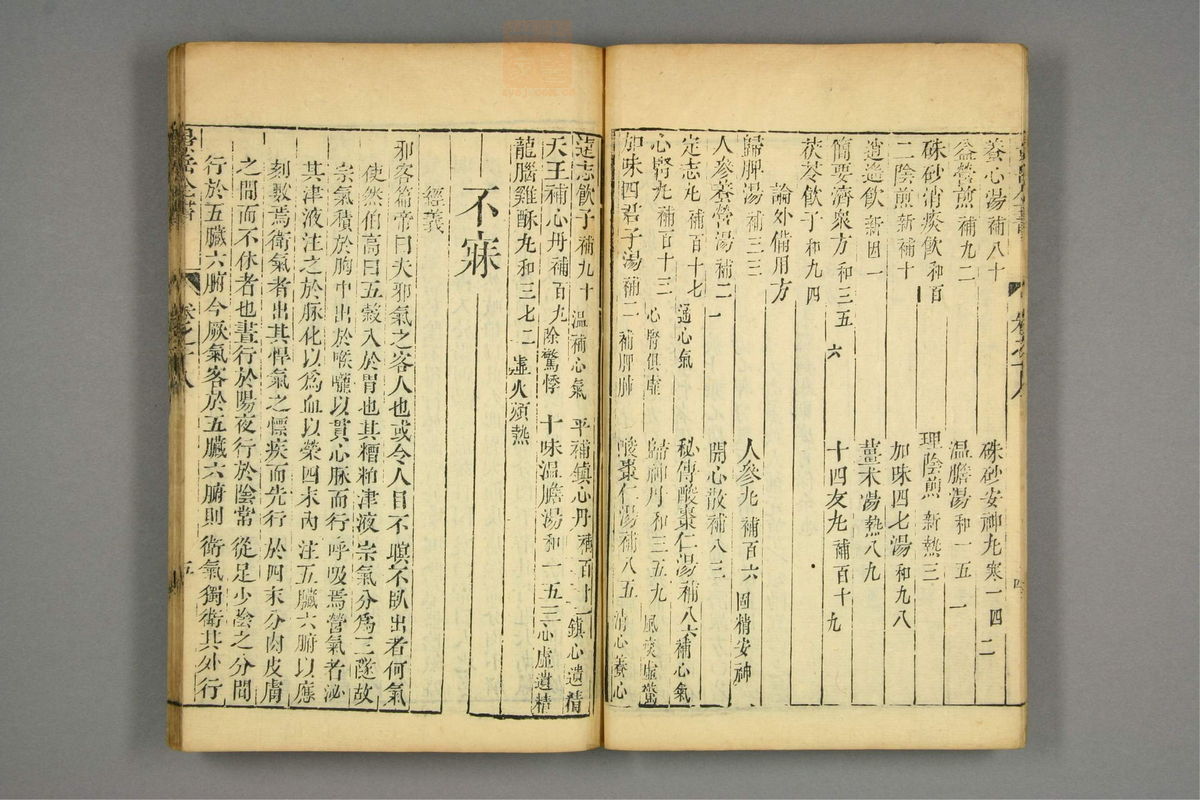 養心湯補八十
硃砂安神丸寒一四二
益營煎補九二
溫膽湯和一五二
硃砂消痰飲和百一
理陰煎新熱三
二陰煎新補十
加味四七湯和九八
逍遙飲新因一
薑朮湯熱八九
簡要濟衆方和三五六
十四友丸補百十九
茯苓飲子和九四
論外備用方
歸脾湯補三三
人參丸補百六固精安神
人參養營湯補二一
開心散補八三
定志丸補百十七通心氣
秘傳酸棗仁湯補八六補心氣
心腎丸補百十三心腎俱虛
歸神丹和三五九風痰虛驚
加味四君子湯補二補脾肺
酸棗仁湯補八五清心養心
遠志飲子補九十溫補心氣
平補鎮心丹補百十一鎮心遺精
天王補心丹補百九除驚悸
十味溫膽湯和一五三心虛遺精
龍腦雞酥丸和三七二虛火煩熱
不寐
經義
邪客篇帝曰夫邪氣之客人也或令人目不瞑不臥出者何氣
使然伯高曰五穀入於胃也其糟粕津液宗氣分爲三隧故
宗氣積於胸中出於喉嚨以貫心脈而行呼吸焉營氣者泌
其津液注之於脈化以爲血以榮四末內注五臟六腑以應
刻數焉衛氣者出其悍氣之慓疾而先行於四末分肉皮膚
之間而不休者也晝行於陽夜行於陰常從足少陰之分間
行於五臟六腑今厥氣客於五臟六腑則衛氣獨衛其外行
景岳全書
卷之十八
五